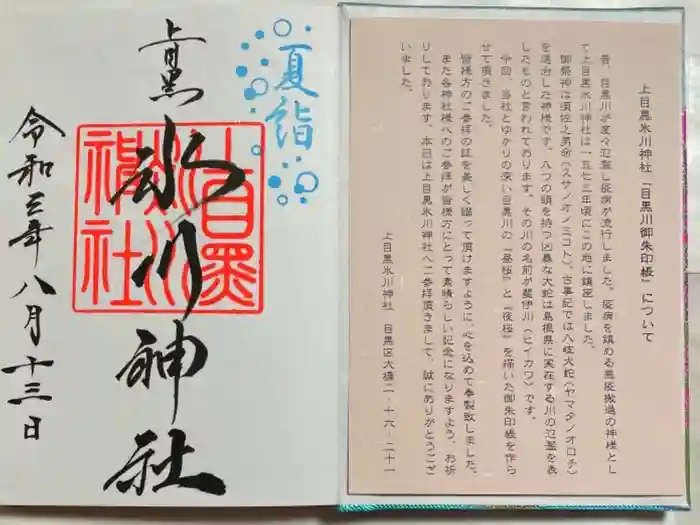 上目黒氷川神社『目黒川御朱印帳』について
昔、目黒川が度々氾濫し疫病が流行しました。疫病を鎮める悪疫撤退の神様とし
て上目黒氷川神社は一五七三年頃にこの地に鎮座しました。
御祭神は須佐之男命(スサノオノミコト)、古事記では八岐大蛇(ヤマタノオロチ)
を退治した神様です。八つの頭を持つ凶暴な大蛇は島根県に実在する川の氾濫を表
したものと言われております。その川の名前が斐伊川(ヒイカワ)です。
今回、当社とゆかりの深い目黒川の『昼桜』と『夜桜』を描いた御朱印帳を作ら
せて頂きました。
皆様方のご参拝の証を美しく綴って頂けますように、心を込めて奉製致しました。
また各神社様へのご参拝が皆様方にとって素晴らしい記念になりますよう、お祈
りしております。本日は上目黒氷川神社へご参拝頂きまして、誠にありがとうござ
いました。
上目黒氷川神社 目黒区大橋二-十六-二十一
夏詣
上目黒
氷川神社
上目黒
氷川
神社
令和三年八月十三日